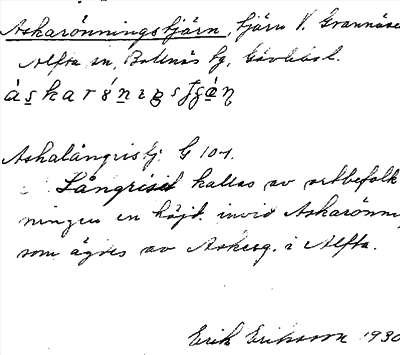 Askarönningstjärn, tjärn V. Grannäsen
Alfta sn, Bollnäs tg, Gävlebl.
Askalångristj. G 104.
Långriset kallas av ortbefolk
ningen en höjd invid Askarönni
som äges av Askesg. i Alfta.
Erik Eriksson 1930